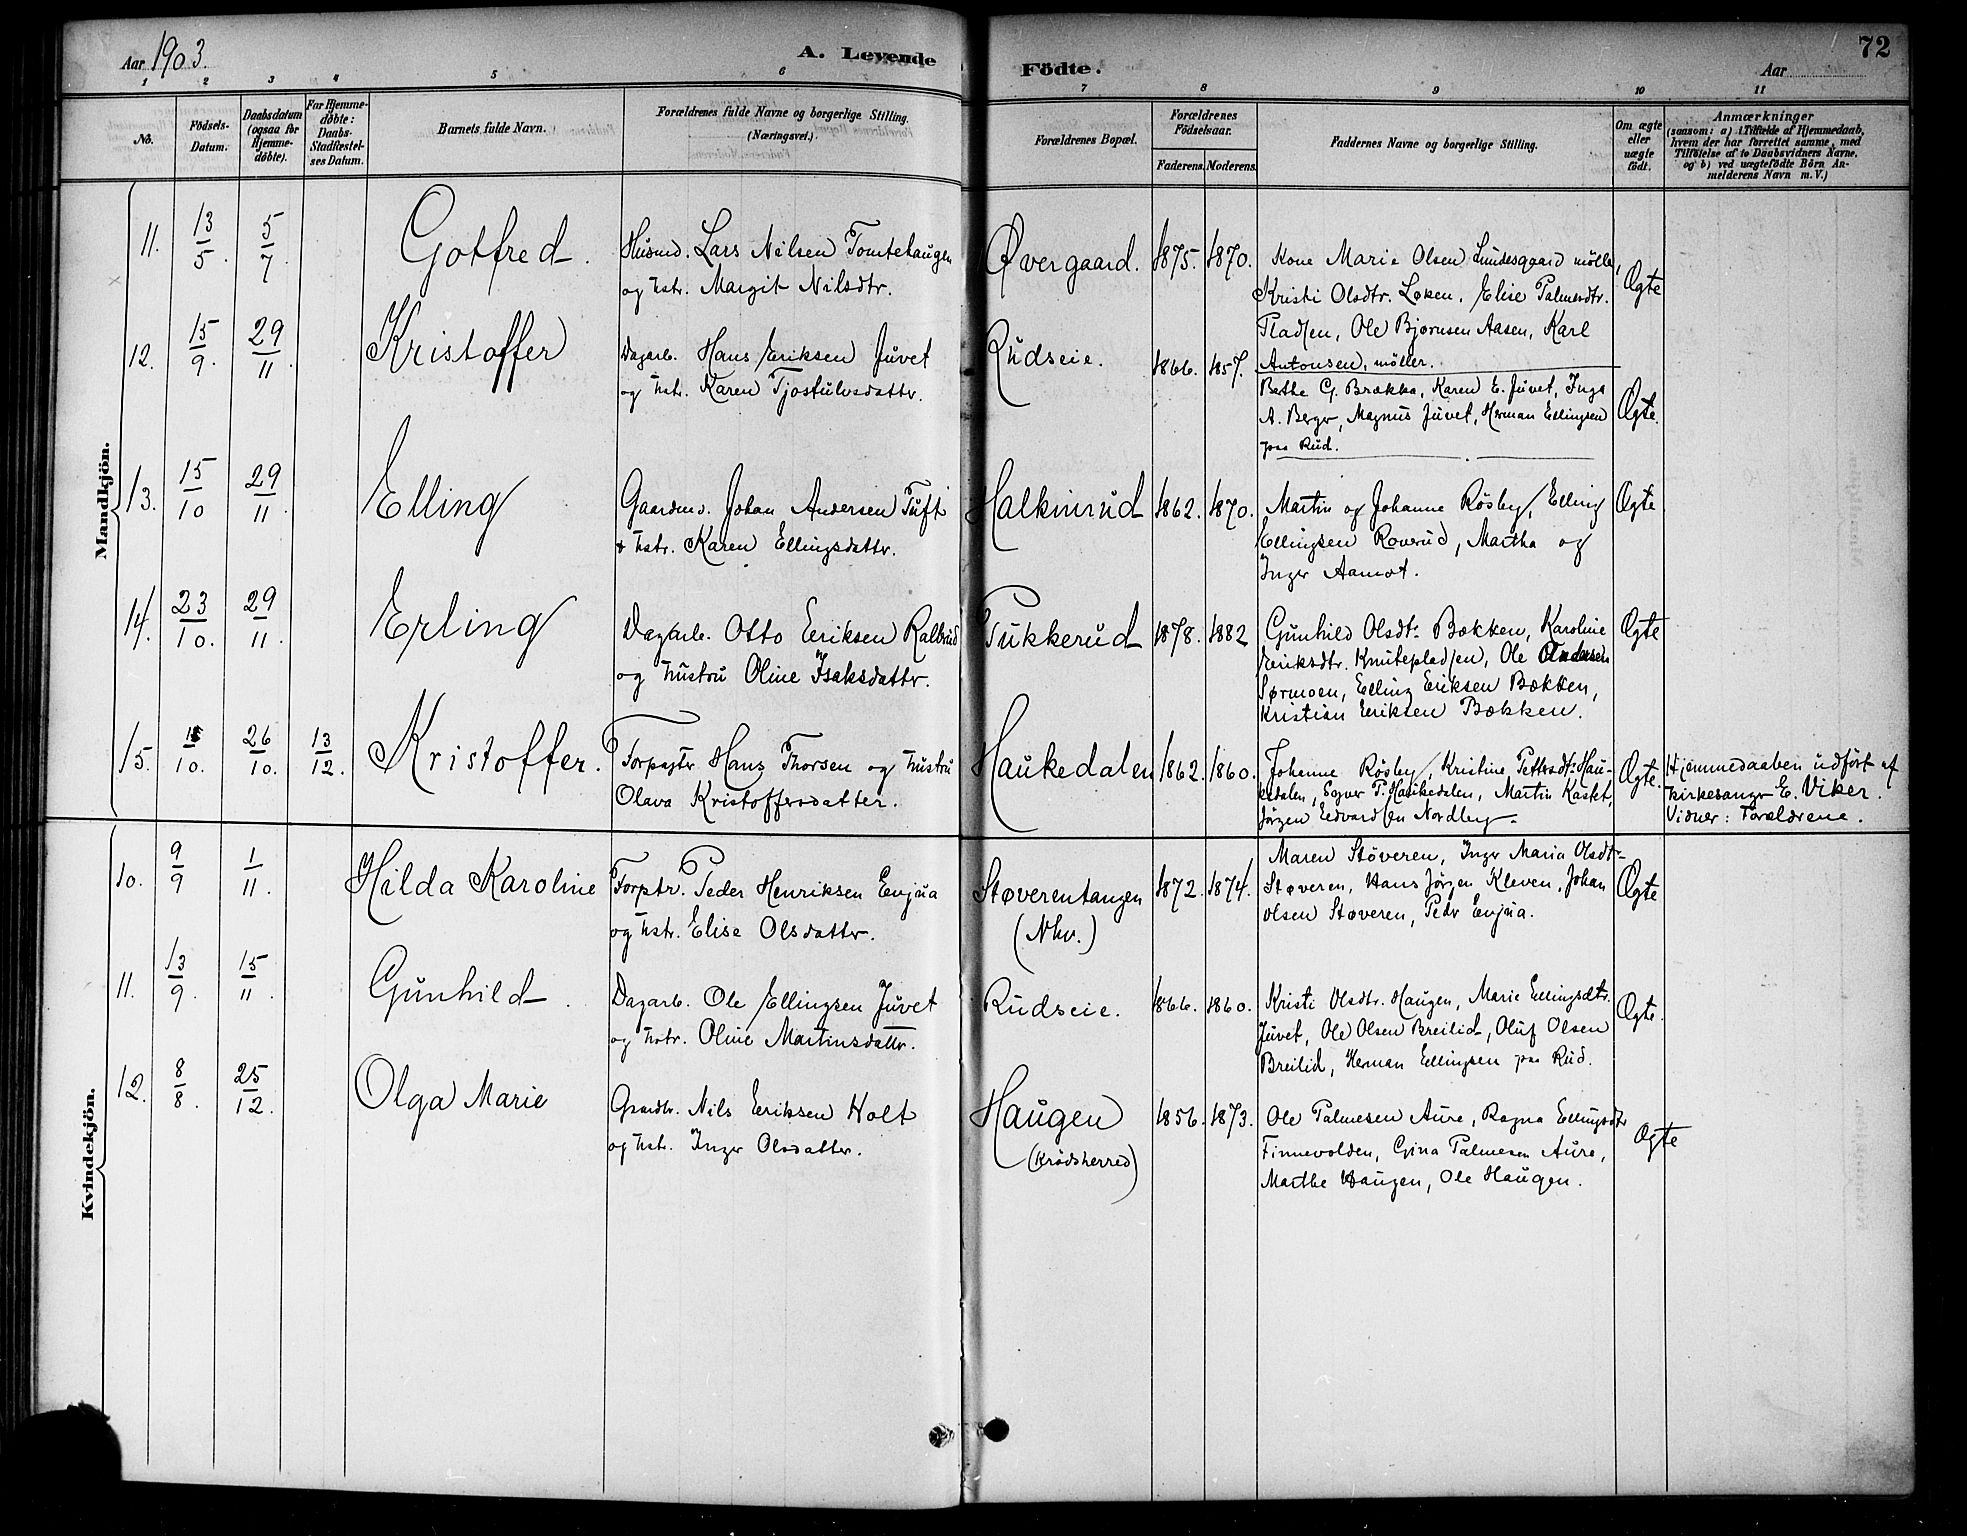 Aar 1903.
A. Levende
Födte.
Aar
72
1 2 3 4 5 6 7 8 9 10 11
No.
Födsels-Datum.
Daabsdatum (ogsaa for Hjemme-döbte).
For Hjemme-döbte: Daabs-Stadfæstel-ses Datum.
Barnets fulde Navn.
Forældrenes fulde Navne og borgerlige Stilling.
(Næringsvei.)
Forældrenes Bopæl.
Forældrenes Födselsaar.
Faderens. Moderens.
Faddernes Navne og borgerlige Stilling.
Om ægte eller uægte födt.
Anmærkninger
(saasom: a) i Tilfælde af Hjemmedaab,
hvem der har forrettet samme, med
Tilföielse af to Daabsvidners Navne,
og b) ved uægtefödte Börn An-
melderens Navn m. V.)
Mandkjön.
11. 13/5 5/7. Gotfred. Husmd. Lars Nilsen Tomtehaugen
og hstr. Margit Nilsdtr.
Øvergaard. 1875. 1870.
Kone Marie Olsen Lundesgaard mølle,
Kristi Olsdtr. Løken, Elise Palmesdtr.
Pladsen, Ole Bjørnsen Aasen, Karl
Antonsen, möller.
Ægte
12. 15/9. 29/11. Kristoffer Dagarb. Hans Eriksen Juvet
og hstr. Karen Tjostulvsdattr.
Rudseie. 1866. 1857.
Berthe G. Brække, Karen E. Juvet, Inga
A. Berger, Magnus Juvet, Herman Ellingsen
paa Rud.
Ægte.
13. 15/10 29/11. Elling Gaardmd. Johan Andersen Tuft
& hstr. Karen Ellingsdattr.
Halkinrud 1862. 1870.
Martin og Johanne Røsby, Elling
Ellingsen Roverud, Martha og
Inger Aamot.
Ægte
14. 23/10. 29/11. Erling Dagarb. Otto Eriksen Ralbrud
og hustru Oline Isaksdattr.
Pukkerud 1878. 1882
Gunhild Olsdtr Bækken, Karoline
Eriksdtr. Knutepladsen, Ole Andersen
Sørmoen, Elling Eriksen Bækken,
Kristian Eriksen Bækken.
Ægte
15. 15/10. 26/10. 13/12. Kristoffer. Forpagter Hans Thorsen og hustru
Olava Kristoffersdatter.
Haukedalen 1862. 1860.
Johanne Røsby, Kristine Pettersdtr Hau-
kedalen, Egner P. Haukedalen, Martin Kastet,
Jørgen Edvardsen Nordby.
Ægte.
Hjemmedaaben udført af
kirkesanger E. Viker.
Vidner: Forældrene.
Kvindekjön.
10. 9/9 1/11. Hilda Karoline Forptr. Peder Henriksen Enjua
og hstr. Elise Olsdattr.
Støverentangen
(Nhv.)
1872. 1874.
Maren Støveren, Inger Maria Olsdtr
Støveren, Hans Jørgen Kleven, Johan
Olsen Støveren, Peder Enjua.
Ægte
11. 13/9. 15/11. Gunhild. Dagarb. Ole Ellingsen Juvet
og hstr. Oline Martinsdattr.
Rudseie. 1866. 1860.
Kristi Olsdtr. Haugen, Marie Ellingsdtr.
Juvet, Ole Olsen Breilid, Oluf Olsen
Breilid, Herman Ellingsen paa Rud.
Ægte.
12. 8/8. 25/12. Olga Marie Gaardbr. Nils Eriksen Holt
og hstr. Inger Olsdatter.
Haugen
(Krødsherred)
1856. 1873.
Ole Palmesen Aure, Ragna Ellingsdtr
Finnevolden, Gina Palmesen Aure,
Marthe Haugen, Ole Haugen.
Ægte